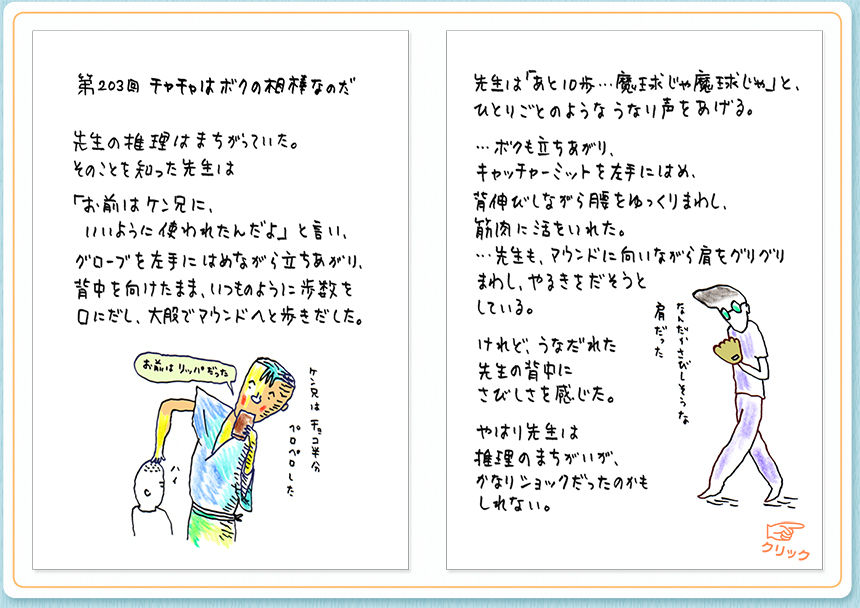 第203回 チャチャはボクの相棒なのだ
先生の推理はまちがっていた。
そのことを知った先生は
「お前はケン兄に、
いいように使われたんだよ」と言い、
グローブを左手にはめながら立ちあがり、
背中を向けたまま、いつものように歩数を
口にだし、大股でマウンドへと歩きだした。
お前はリッパだった
ハイ
ケン兄はチョコ半分
ペロペロした
先生は「あと10歩…魔球じゃ魔球じゃ」と、
ひとりごとのようなうなり声をあげる。
…ボクも立ちあがり、
キャッチャーミットを左手にはめ、
背伸びしながら腰をゆっくりまわし、
筋肉に活をいれた。
…先生も、マウンドに向いながら肩をグリグリ
まわし、やるきをだそうと
している。
けれど、うなだれた
先生の背中に
さびしさを感じた。
やはり先生は
推理のまちがいが、
かなりショックだったのかも
しれない。
なんだかさびしそうな
肩だった
クリック